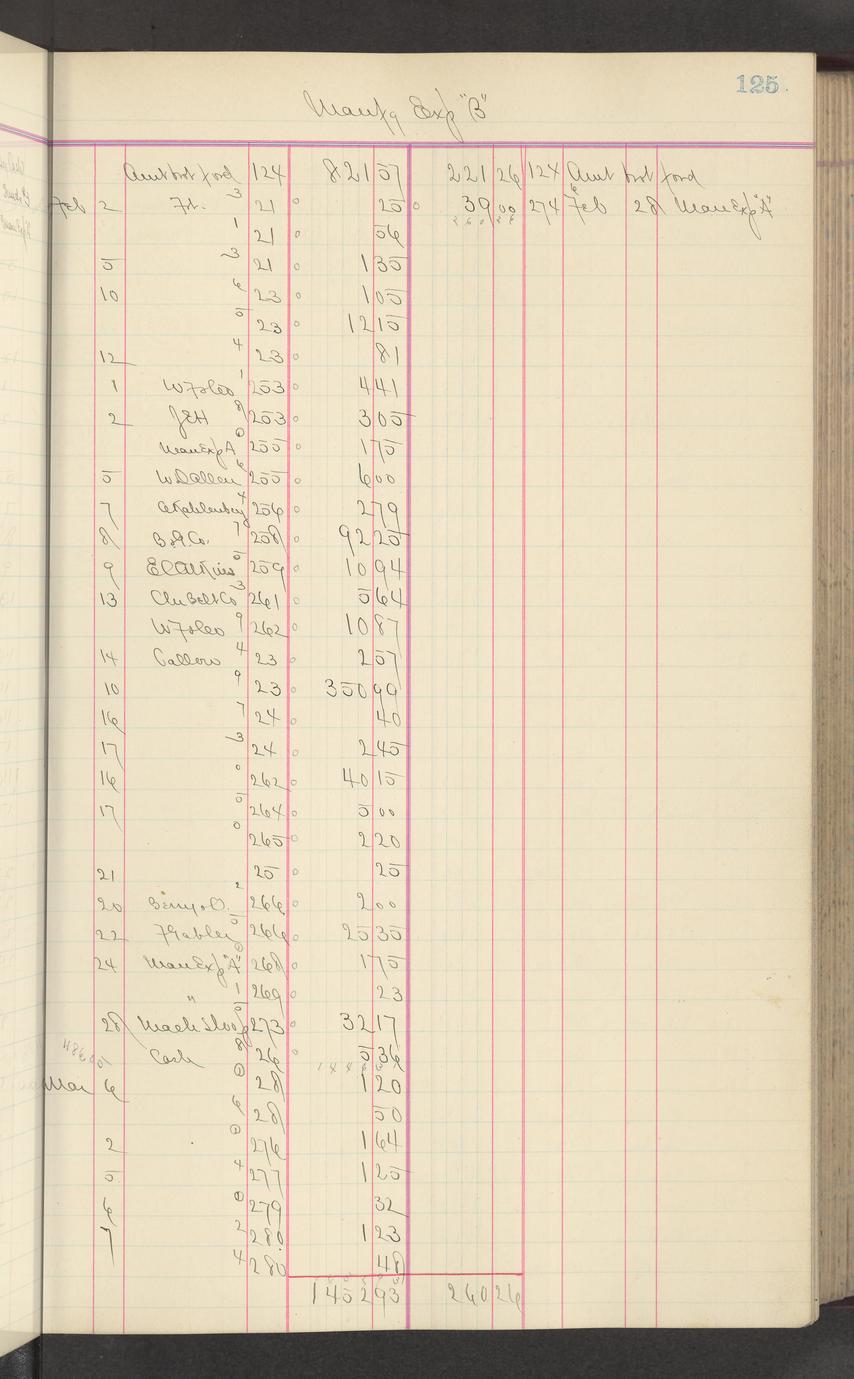 125
Manfg Exp "B"
Amt brot ford 124 821 57 221 26 124 Amt brot ford
Feb 2 Frt. 3 21 25 39 00 274 6 Feb 28 Man Exp "A"
1 21 56
5 3 21 1 35
10 6 23 1 05
5 23 12 15
12 4 23 81
1 W F & Co 1 253 4 41
2 J E H 8 253 3 05
Man Exp A 0 255 1 75
5 W D Allen 6 255 6 00
7 4 256 2 79
8 B. & Co. 7 258 92 25
9 E C Atkins 5 259 10 94
13 Clu Bolt Co 3 261 5 64
W F & Co 9 262 10 87
14 Callow 4 23 2 57
10 9 23 350 99
16 7 24 40
17 3 24 2 45
16 0 262 40 15
17 5 264 5 00
0 265 2 20
21 25 25
20 2 266 2 00
22 5 266 25 35
24 Man Exp "A" 0 268 1 75
" 1 269 23
28 Mach Shop 0 273 32 17
Cash 8 26 5 36
Mar 6 0 28 1 20
6 28 50
2 0 276 1 64
5 4 277 1 25
6 0 279 32
7 2 280 1 23
4 280 48
1452 93 260 26